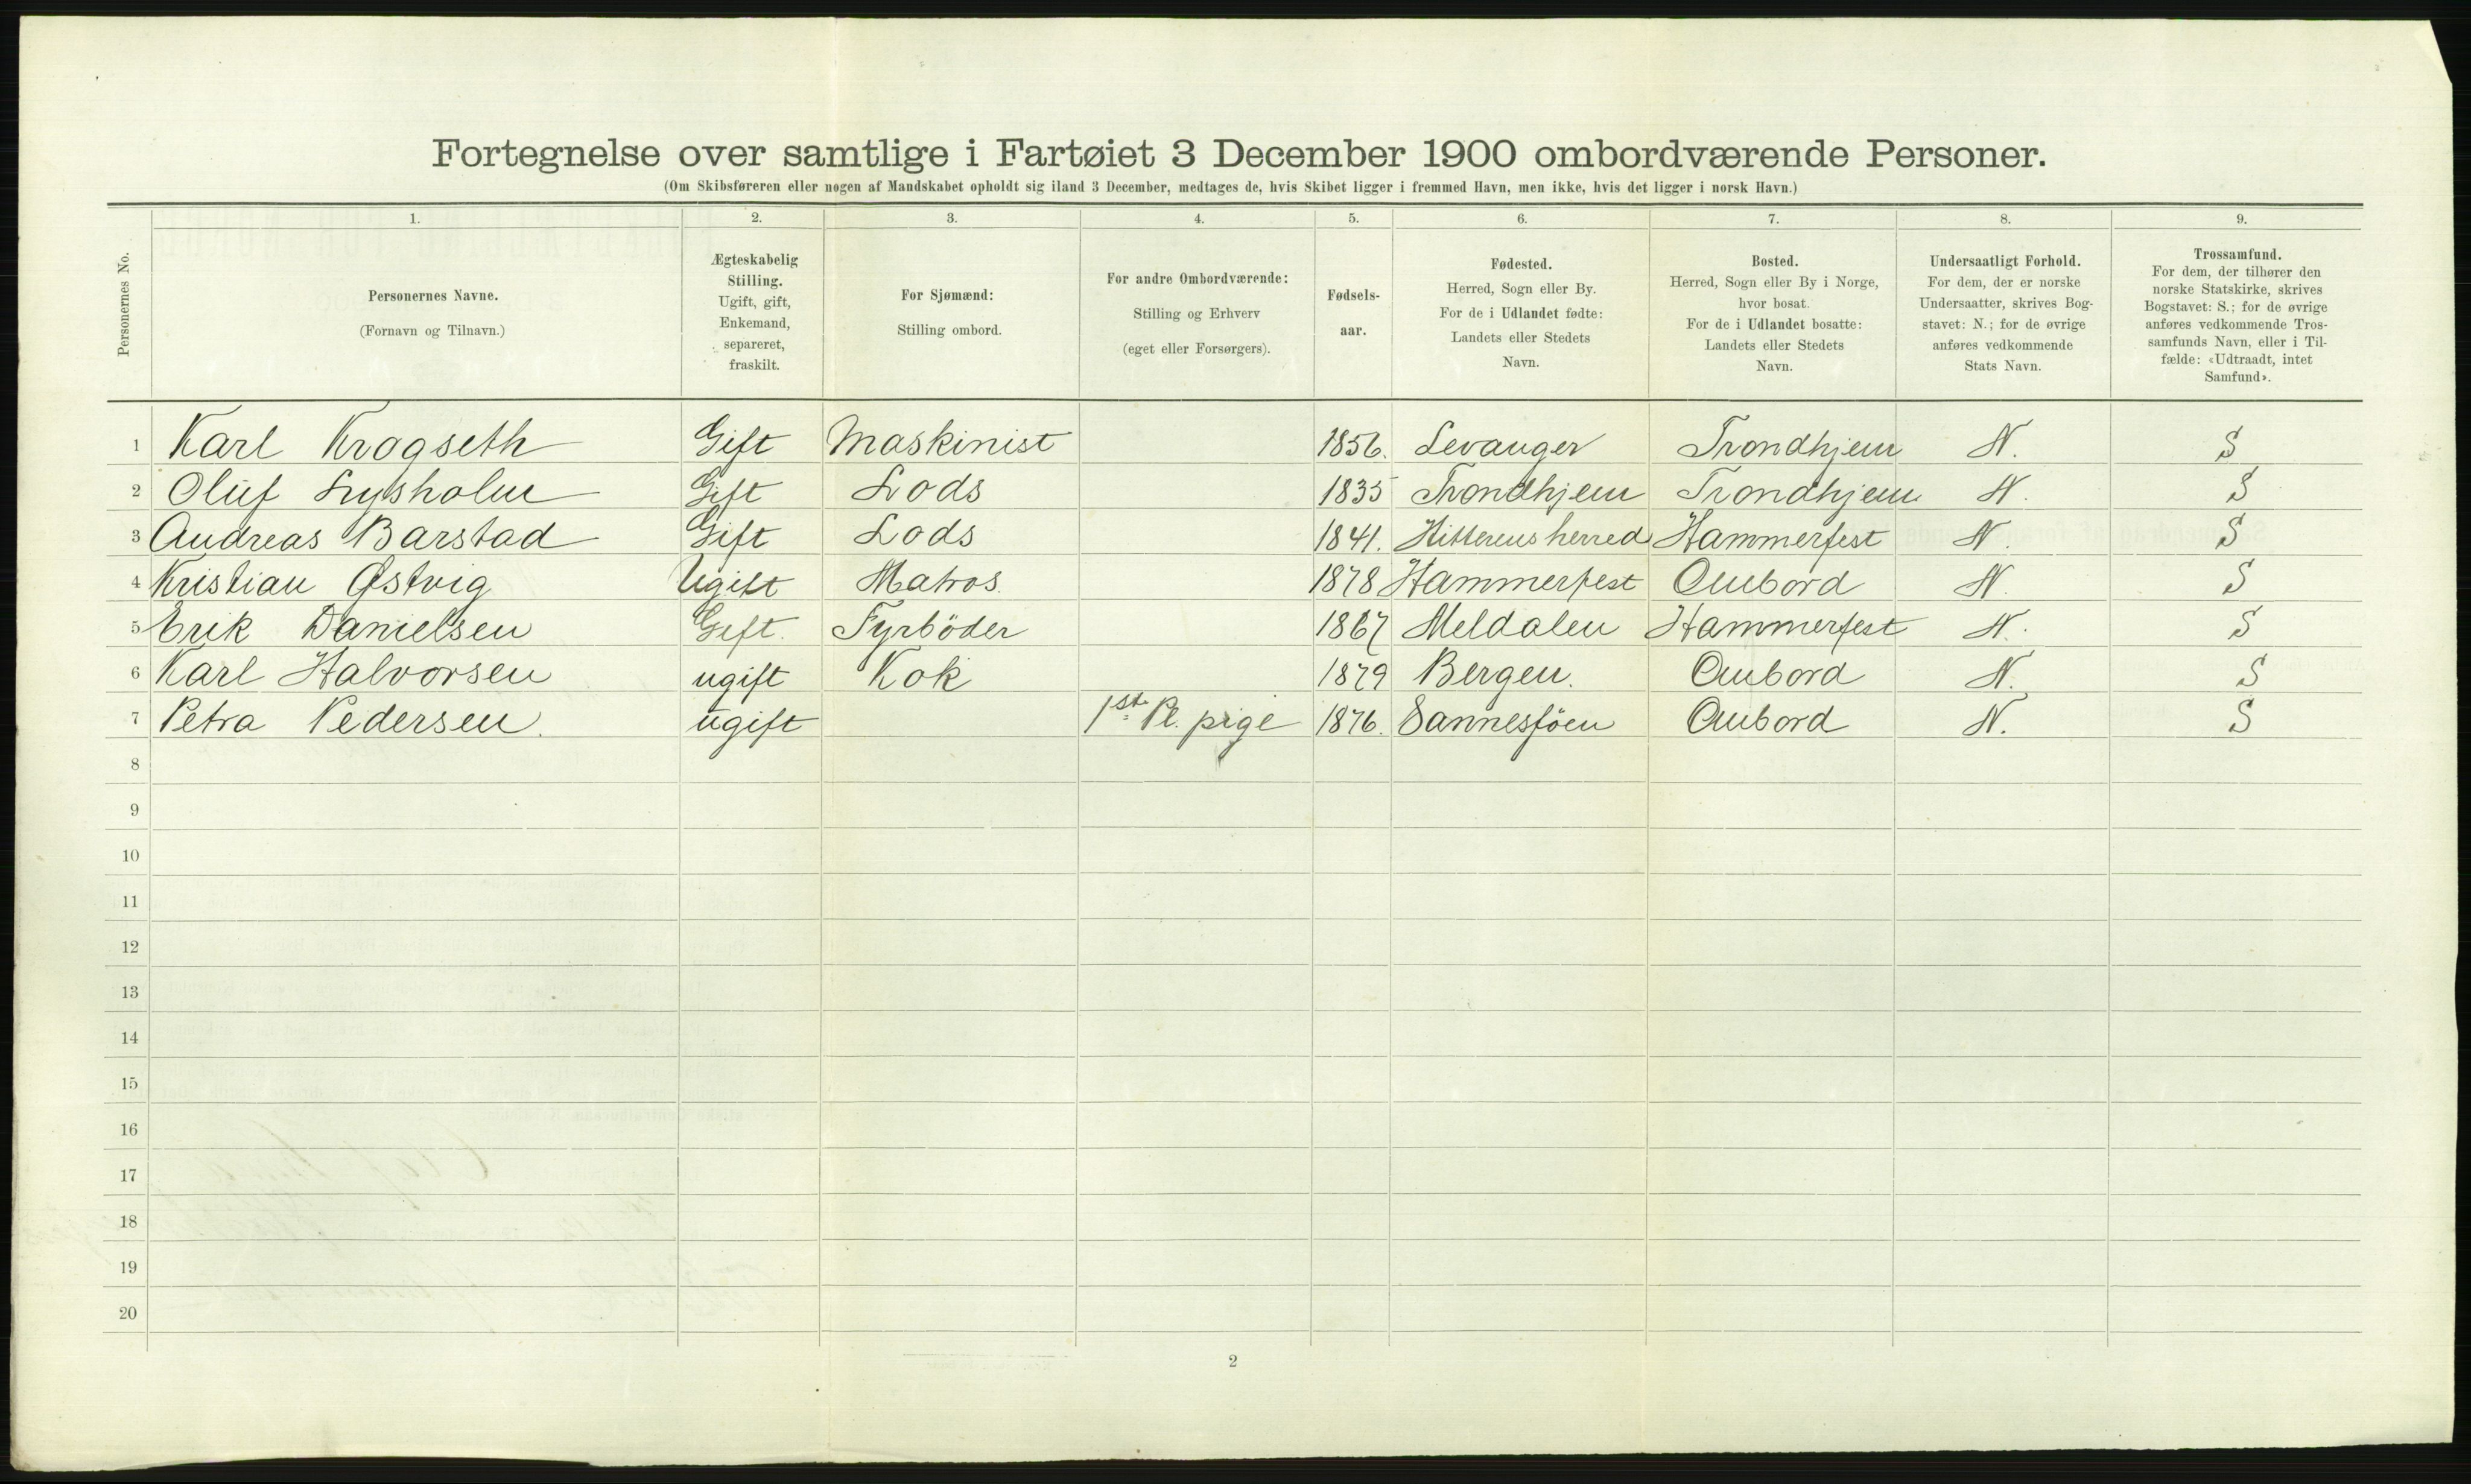 Fortegnelse over samtlige i Fartøiet 3 December 1900 ombordværende Personer.
(Om Skibsføreren eller nogen af Mandskabet opholdt sig iland 3 December, medtages de, hvis Skibet ligger i fremmed Havn, men ikke, hvis det ligger i norsk Havn.)
Personernes No.
1. 2. 3. 4. 5. 6. 7. 8. 9.
Personernes Navne.
(Fornavn og Tilnavn.)
Ægteskabelig
Stilling.
Ugift, gift,
Enkemand,
separeret,
fraskilt.
For Sjømænd:
Stilling ombord.
For andre Ombordværende:
Stilling og Erhverv
(eget eller Forsørgers).
Fødsels-
aar.
Fødested.
Herred, Sogn eller By.
For de i Udlandet fødte:
Landets eller Stedets
Navn.
Bosted.
Herred, Sogn eller By i Norge,
hvor bosat.
For de i Udlandet bosatte:
Landets eller Stedets
Navn.
Undersaatligt Forhold.
For dem, der er norske
Undersaatter, skrives Bog-
stavet: N.; for de øvrige
anføres vedkommende
Stats Navn.
Trossamfund.
For dem, der tilhører den
norske Statskirke, skrives
Bogstavet: S.; for de øvrige
anføres vedkommende Tros-
samfunds Navn, eller i Til-
fælde: «Udtraadt, intet
Samfund».
1 Karl Krogseth Gift Maskinist 1856. Levanger Trondhjem N. S
2 Oluf Lysholm Gift Lods 1835 Trondhjem Trondhjem N. S
3 Andreas Barstad Gift Lods 1841. Hitterens herred Hammerfest N. S
4 Kristian Østvig Ugift Matros. 1878 Hammerfest Ombord N. S
5 Erik Danielsen Gift. Fyrböder 1867 Meldalen Hammerfest N. S
6 Karl Halvorsen ugift Kok 1879 Bergen. Ombord N. S
7 Petra Pedersen. ugift 1st Pl. pige 1876. Sannesföen Ombord N. S
8
9
10
11
12
13
14
15
16
17
18
19
20
2